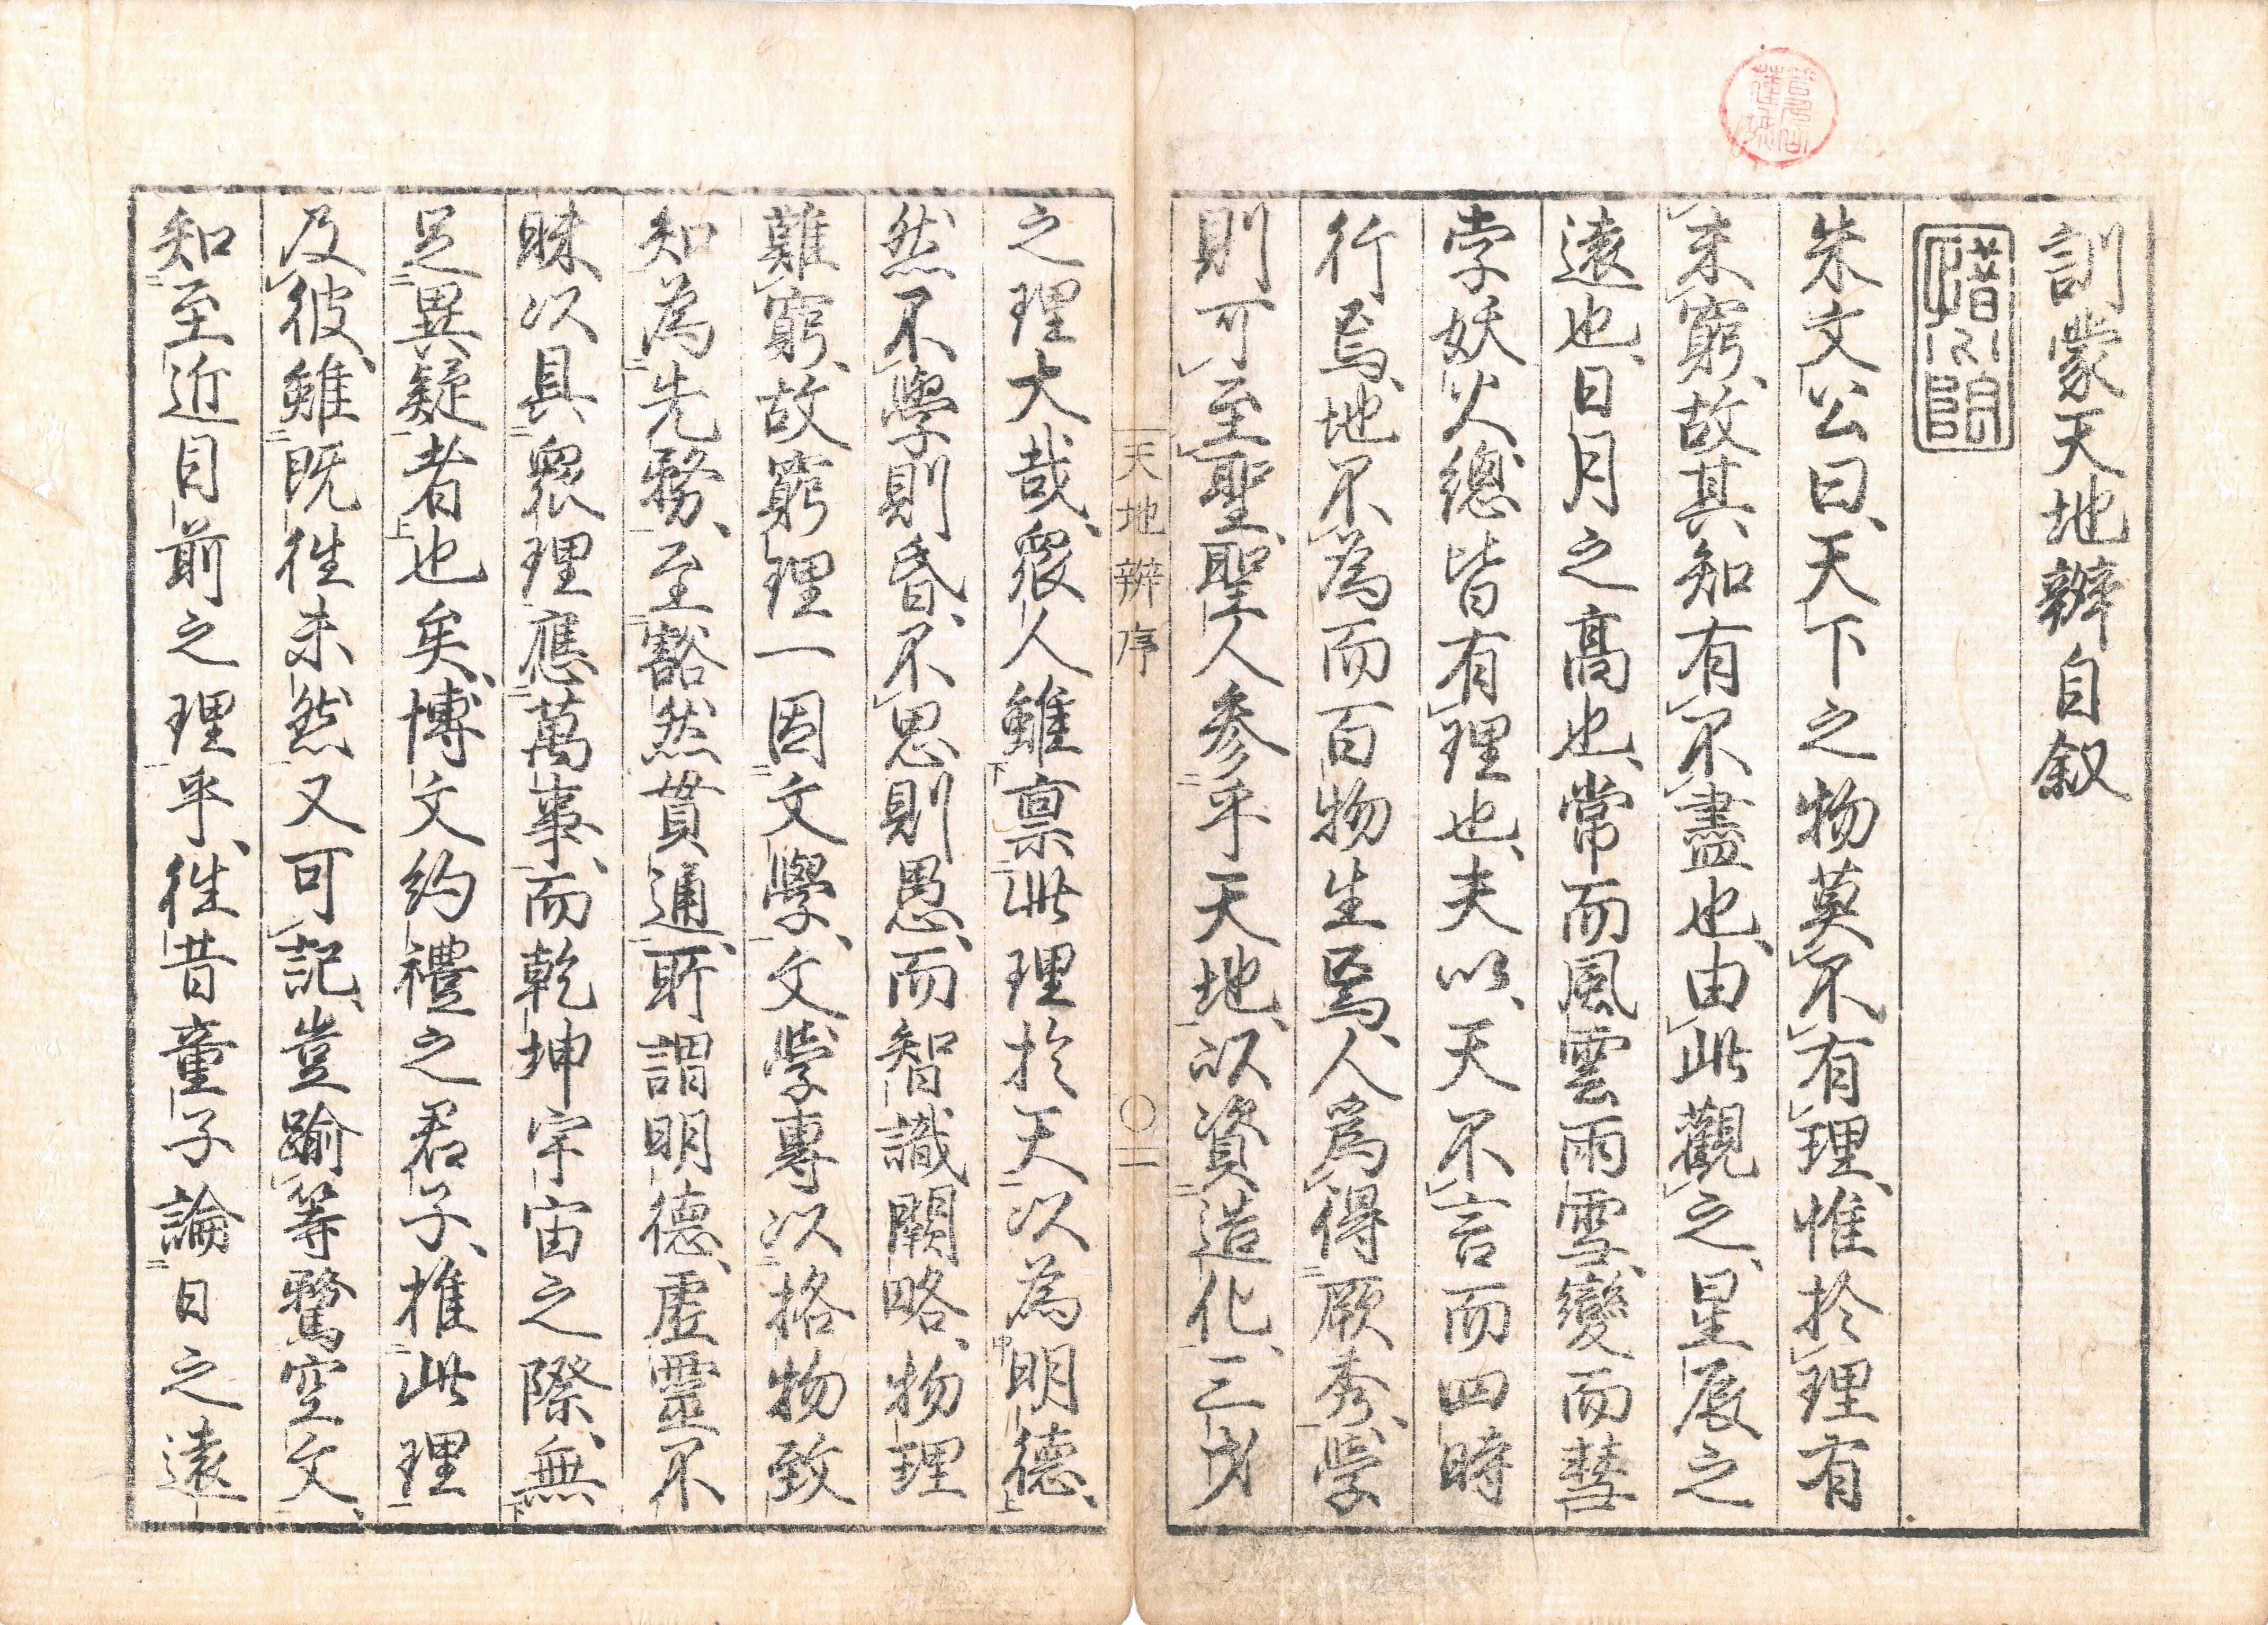 訓蒙天地辨自叙
朱文公曰、天下之物莫不有理、惟於理有
未窮、故其知有不盡也、由此觀之、星辰之
遠也、日月之高也、常而風雲雨雪、變而彗
孛妖火總皆有理也、夫以、天不言而四時
行焉、地不為而百物生焉、人爲得厥秀、学
則可至聖、聖人参乎天地、以資造化、三才
天地辨序
〇一
之理大哉、衆人雖禀此理於天以為明德、
然不學則昏、不思則愚、而智識闕略、物理
難窮、故窮理一因文學、文学專以格物致
知為先務、至豁然貫通、所謂明德、虚靈不
昧以具衆理應萬事、而乾坤宇宙之際、無
足異疑者也矣、博文約禮之君子、推此理
及彼、雖既徃未然又可記、豈踰等騖空文、
知至近目前之理乎、徃昔童子論日之遠